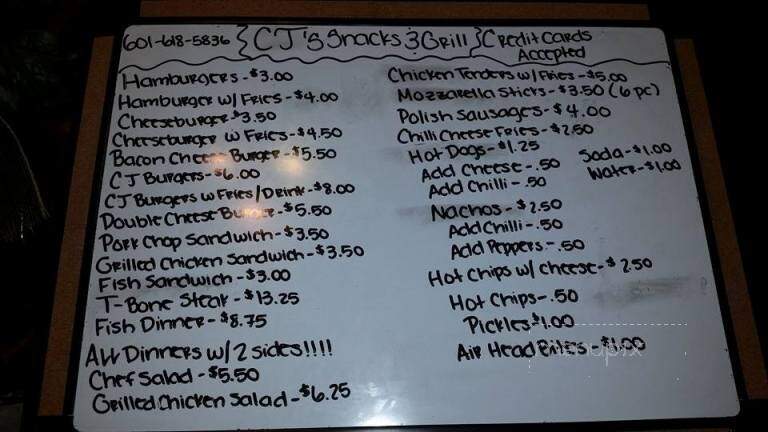 601-618-5836 { CJ's Snacks & Grill } Credit Cards
Accepted
Hamburgers - $3.00
Hamburger w/ Fries - $4.00
Cheeseburger $3.50
Cheeseburger w Fries - $4.50
Bacon Cheese Burger - $5.50
CJ Burgers - $6.00
CJ Burgers w/ Fries/Drink - $8.00
Double Cheese Burger - $5.50
Pork Chop Sandwich - $3.50
Grilled Chicken Sandwich - $3.50
Fish Sandwich - $3.00
T-Bone Steak - $13.25
Fish Dinner - $8.75
All Dinners w/ 2 sides!!!!
Chef Salad - $5.50
Grilled Chicken Salad - $6.25
Chicken Tenders w/ Fries - $5.00
Mozzarella Sticks - $3.50 (6 pc)
Polish Sausages - $4.00
Chilli Cheese Fries - $2.50
Hot Dogs - $1.25
Add Cheese - .50
Add Chilli - .50
Soda - $1.00
Water - $1.00
Nachos - $2.50
Add Chilli - .50
Add Peppers - .50
Hot Chips w/ Cheese - $2.50
Hot Chips - .50
Pickles $1.00
Air Head Bites - $1.00
menupix